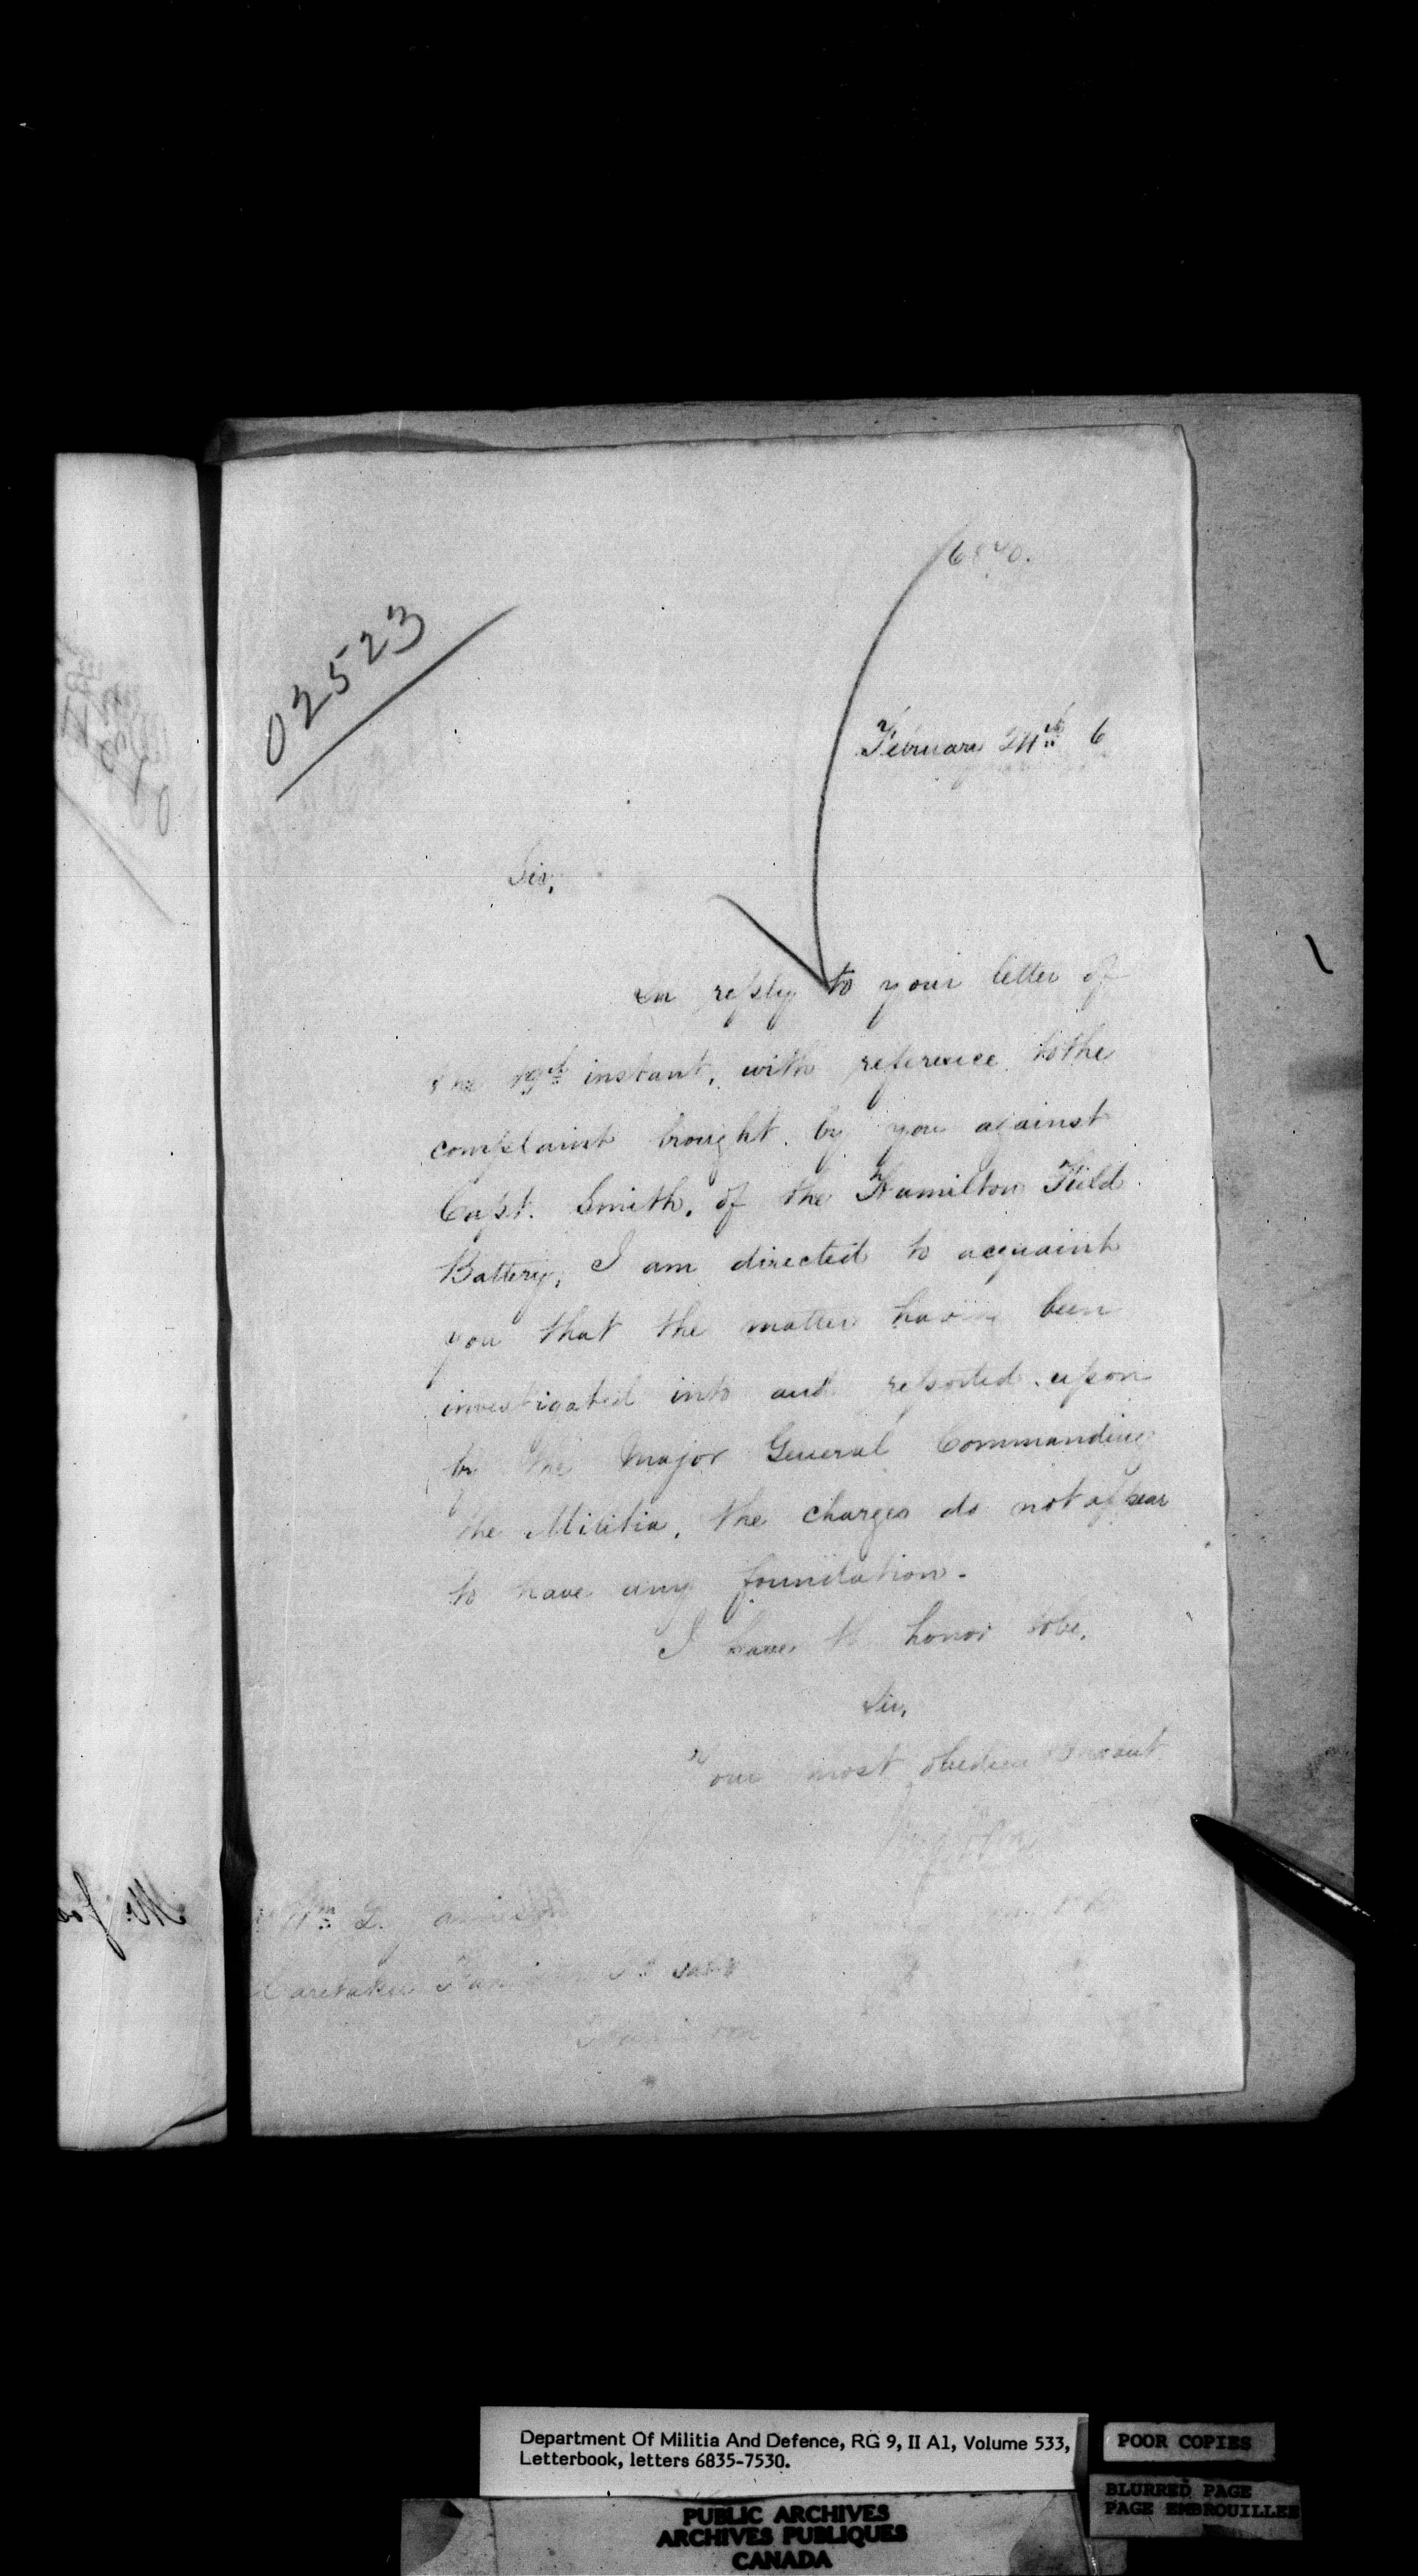 02523
Sir,
In reply to your letter of
instant, with reference to the
complaint brought by you against
Capt. Smith, of the Hamilton Field
Battery, I am directed to acquaint
you that the matter having been
investigated into and reported upon
by the Major General Commanding
the Militia, the charges do not appear
to have any foundation.
I have the honor to be,
Sir,
Your most obedient Servant
Wm
Caretaker
Department Of Militia And Defence, RG 9, II A1, Volume 533,
Letterbook, letters 6835-7530.
POOR COPIES
BLURRED PAGE
PAGE EMBROUILLEE
PUBLIC ARCHIVES
ARCHIVES PUBLIQUES
CANADA